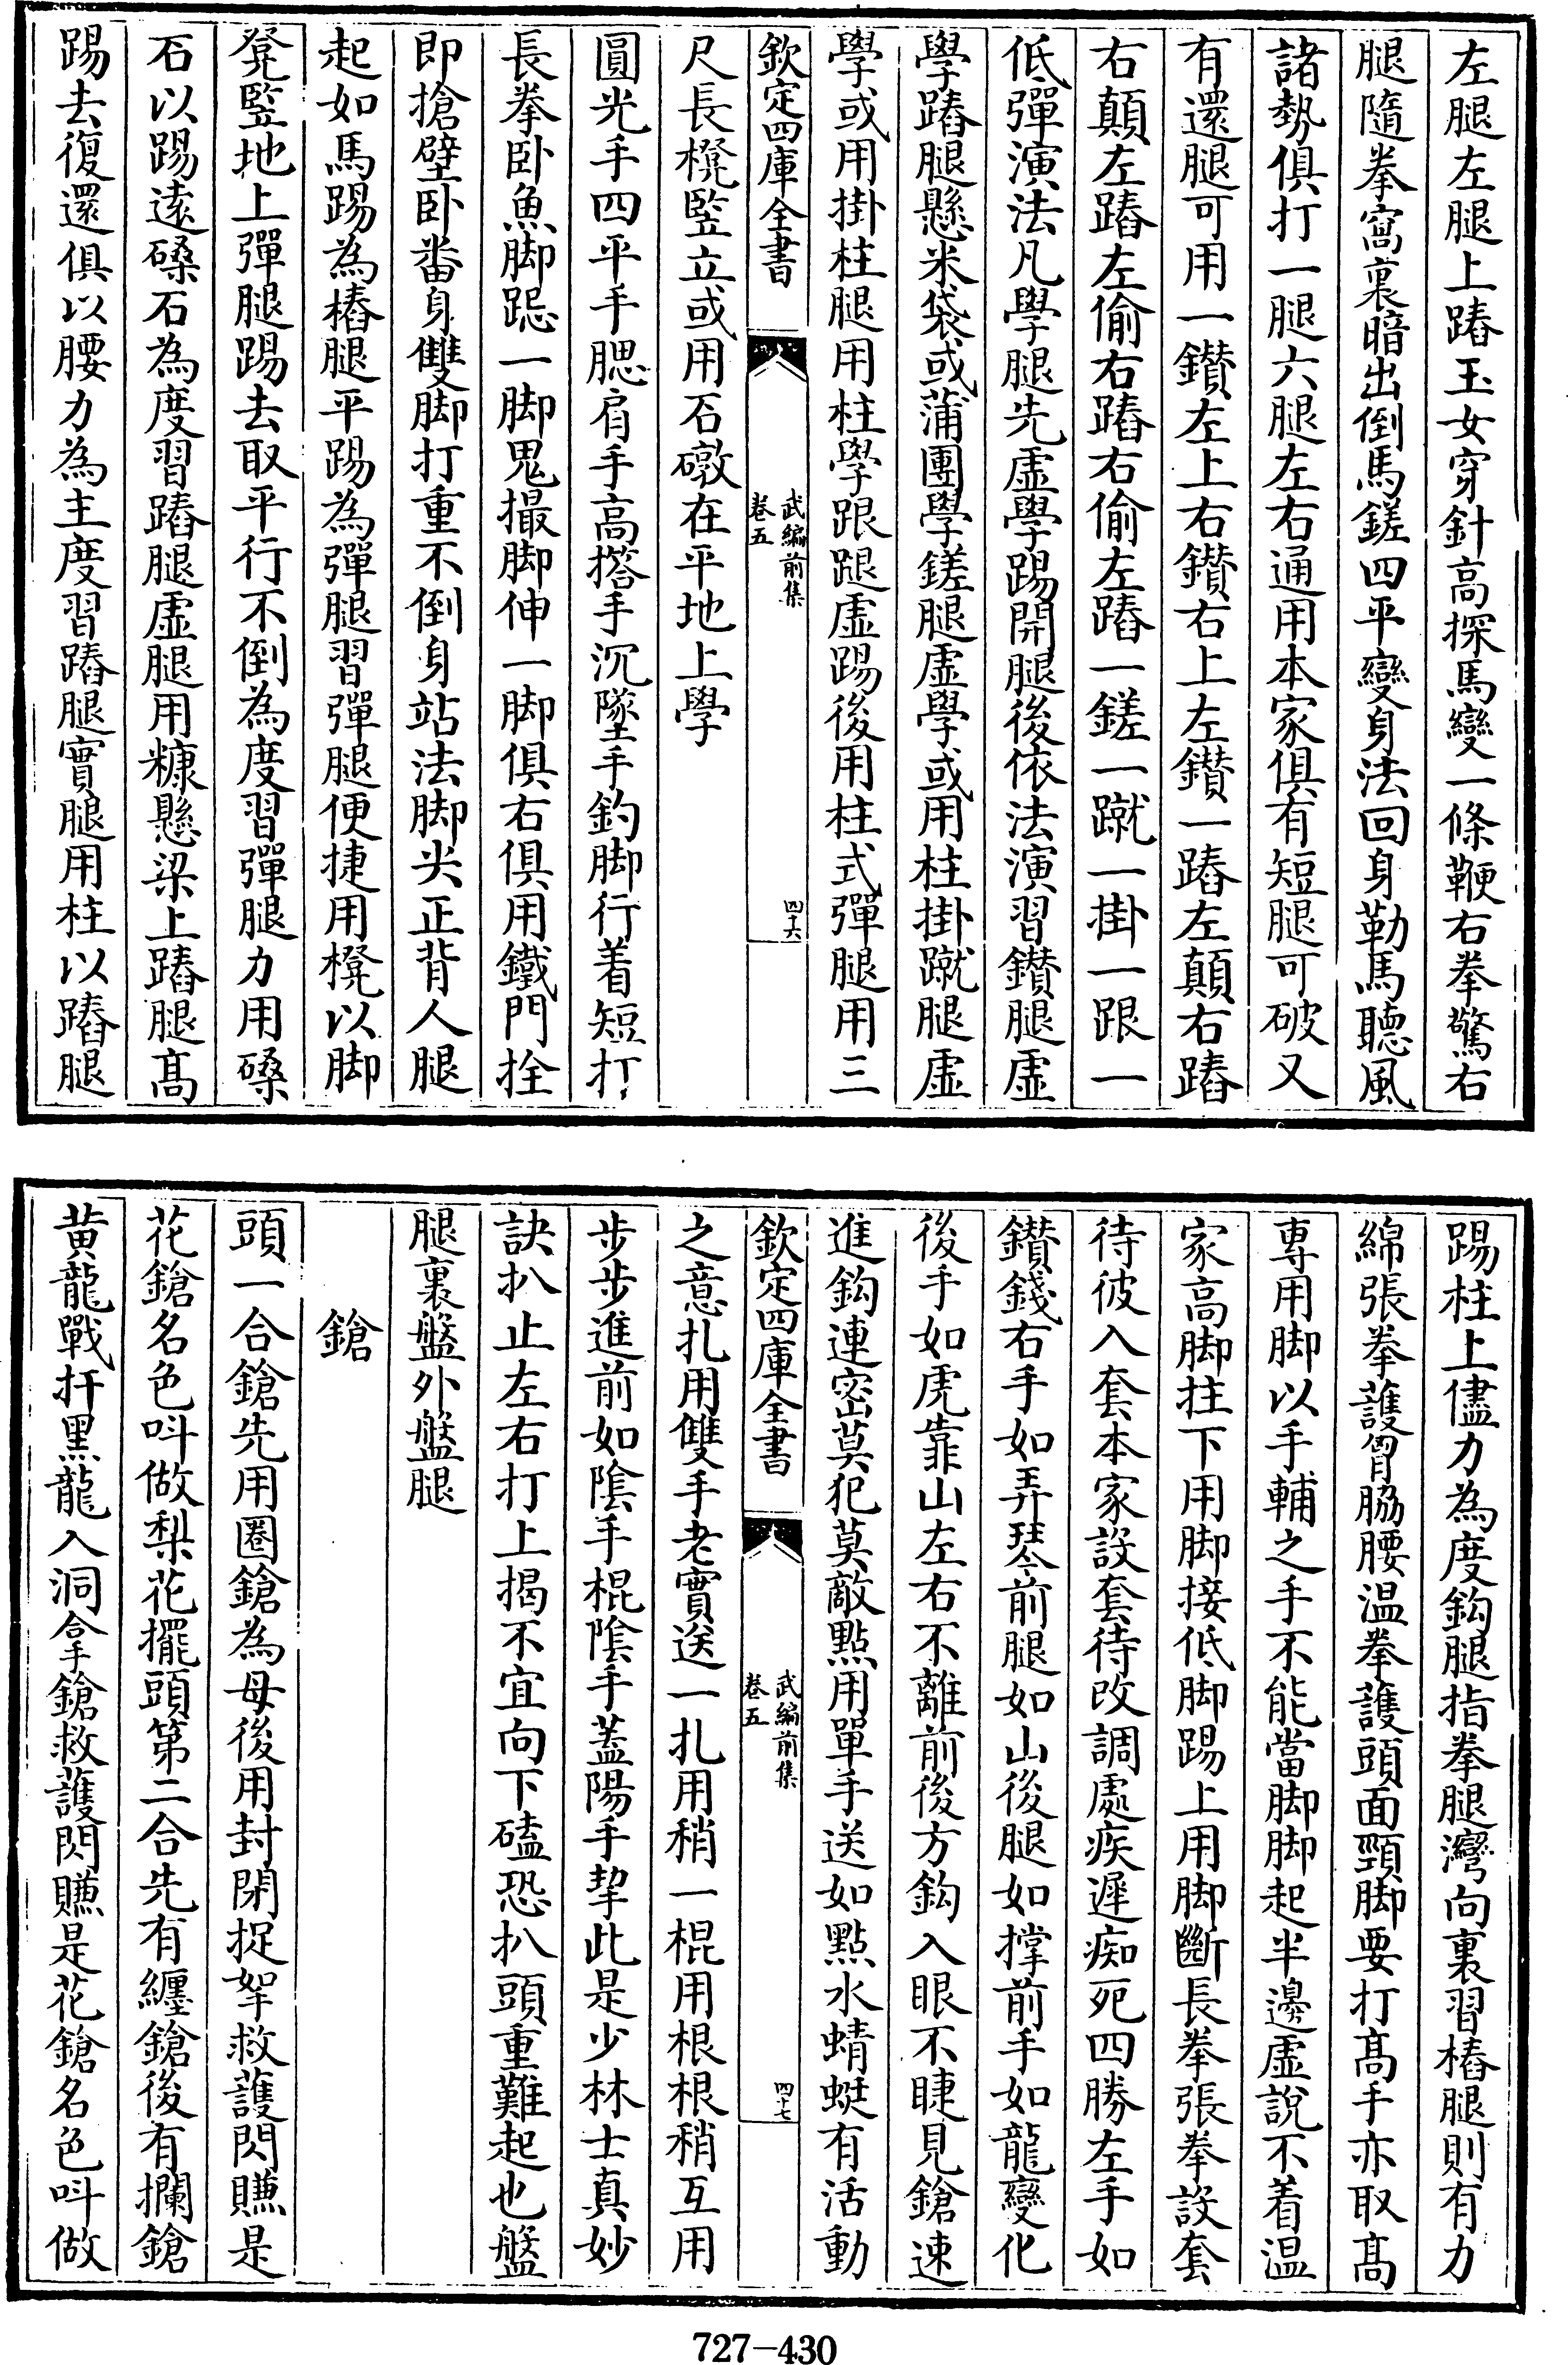 左腿左腿上蹅玉女穿針高探馬變一條鞭右拳驚右
腿隨拳窩裏暗出倒馬鎈四平變身法回身勒馬聽風
諸勢俱打一腿六腿左右通用本家俱有短腿可破又
有還腿可用一鑚左上右鑚右上左鑚一蹅左顛右蹅
右顛左蹅左偷右蹅右偷左蹅一鎈一蹴一掛一跟一
低彈演法凡學腿先虛學踢開腿後依法演習鑚腿虛
學蹅腿懸米袋或蒲團學鎈腿虛學或用柱掛蹴腿虛
學或用掛柱腿用柱學跟腿虛踢後用柱式彈腿用三
欽定四庫全書
武編前集
卷五
四十六
尺長櫈竪立或用石礅在平地上學
圓光手四平手腮肩手高搭手沉墜手釣脚行着短打
長拳卧魚脚跽一脚鬼撮脚伸一脚俱右俱用鐵門拴
即搶壁卧畨身雙脚打重不倒身站法脚尖正背人腿
起如馬踢為樁腿平踢為彈腿習彈腿便捷用櫈以脚
凳竪地上彈腿踢去取平行不倒為度習彈腿力用磉
石以踢遠磉石為度習蹅腿虛腿用糠懸梁上蹅腿髙
踢去復還俱以腰力為主度習蹅腿實腿用柱以蹅腿
踢柱上儘力為度鈎腿指拳腿灣向裏習樁腿則有力
綿張拳護胷脇腰温拳護頭面頸脚要打髙手亦取髙
專用脚以手輔之手不能當脚脚起半邊虛說不着温
家高脚拄下用脚接低脚踢上用脚斷長拳張拳設套
待彼入套本家設套待改調處疾遲痴死四勝左手如
鑚錢右手如弄琴前腿如山後腿如撑前手如龍變化
後手如虎靠山左右不離前後方鈎入眼不睫見鎗速
進鈎連密莫犯莫敵點用單手送如點水蜻蜓有活動
欽定四庫全書
武編前集
卷五
四十七
之意扎用雙手老實送一扎用稍一棍用根根稍互用
步步進前如隂手棍隂手葢陽手挈此是少林士真妙
訣扒止左右打上揭不宜向下磕恐扒頭重難起也盤
腿裏盤外盤腿
鎗
頭一合鎗先用圈鎗為母後用封閉捉拏救護閃賺是
花鎗名色呌做梨花擺頭第二合先有纏鎗後有攔鎗
黄龍戰扞黑龍入洞拿鎗救護閃賺是花鎗名色呌做
727-430